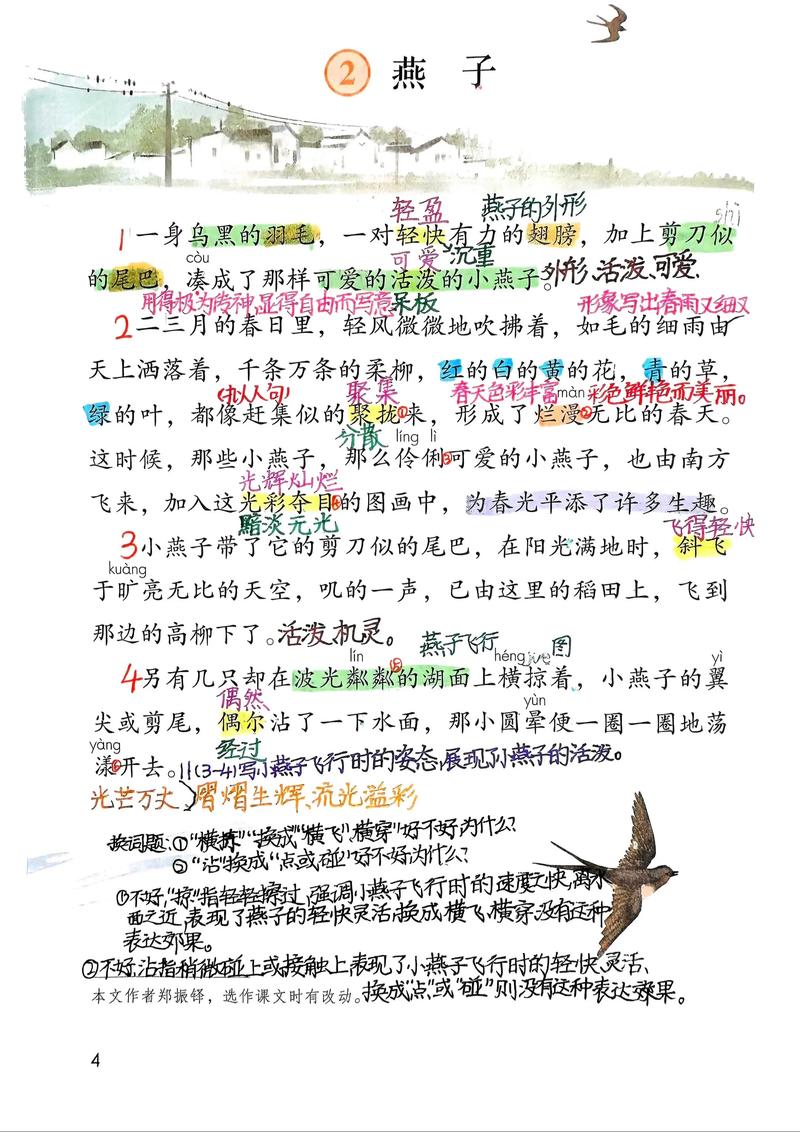 2 燕子
轻盈 燕子的外形
1 一身乌黑的羽毛，一对轻快有力的翅膀，加上剪刀似
còu 可爱 沉重
的尾巴，凑成了那样可爱的活泼的小燕子。外形、活泼、可爱、
用得极为传神,显得自由而写意 呆板 形象写出春雨又细又
2 二三月的春日里，轻风微微地吹拂着，如毛的细雨由
天上洒落着，千条万条的柔柳，红的白的黄的花，青的草，
(拟人句) 聚集 春天色彩丰富 màn 彩色鲜艳而美丽。
绿的叶，都像赶集似的聚拢①来，形成了烂漫②无比的春天。
分散 líng lì
这时候，那些小燕子，那么伶俐③可爱的小燕子，也由南方
光辉灿烂
飞来，加入这光彩夺目④的图画中，为春光平添了许多生趣。
黯淡无光 飞得轻快
3 小燕子带了它的剪刀似的尾巴，在阳光满地时，斜飞
kuàng
于旷亮无比的天空，叽的一声，已由这里的稻田上，飞到
那边的高柳下了。活泼、机灵。
燕子飞行 图
lín ⑤ héng
4 另有几只却在波光粼粼的湖面上横掠着，小燕子的翼
偶然 yùn yì
尖或剪尾，偶尔沾了一下水面，那小圆晕便一圈一圈地荡
yàng 经过
漾⑥开去。11(3-4)写小燕子飞行时的姿态,展现了小燕子的活泼。
光芒万丈、熠熠生辉、流光溢彩
换词题：①“横掠”换成“横飞”、“横穿”好不好,为什么?
②“沾”换成“点或碰”好不好为什么?
①不好,“掠”指轻轻擦过,强调小燕子飞行时的速度之快,离水
面之近,表现了燕子的轻快灵活,换成横飞、横穿没有这种
表达效果。
②不好,沾指稍微碰上或接触上表现了小燕子飞行时的轻快、灵活、
本文作者郑振铎，选作课文时有改动。换成“点”或“碰”则没有这种表达效果。
4